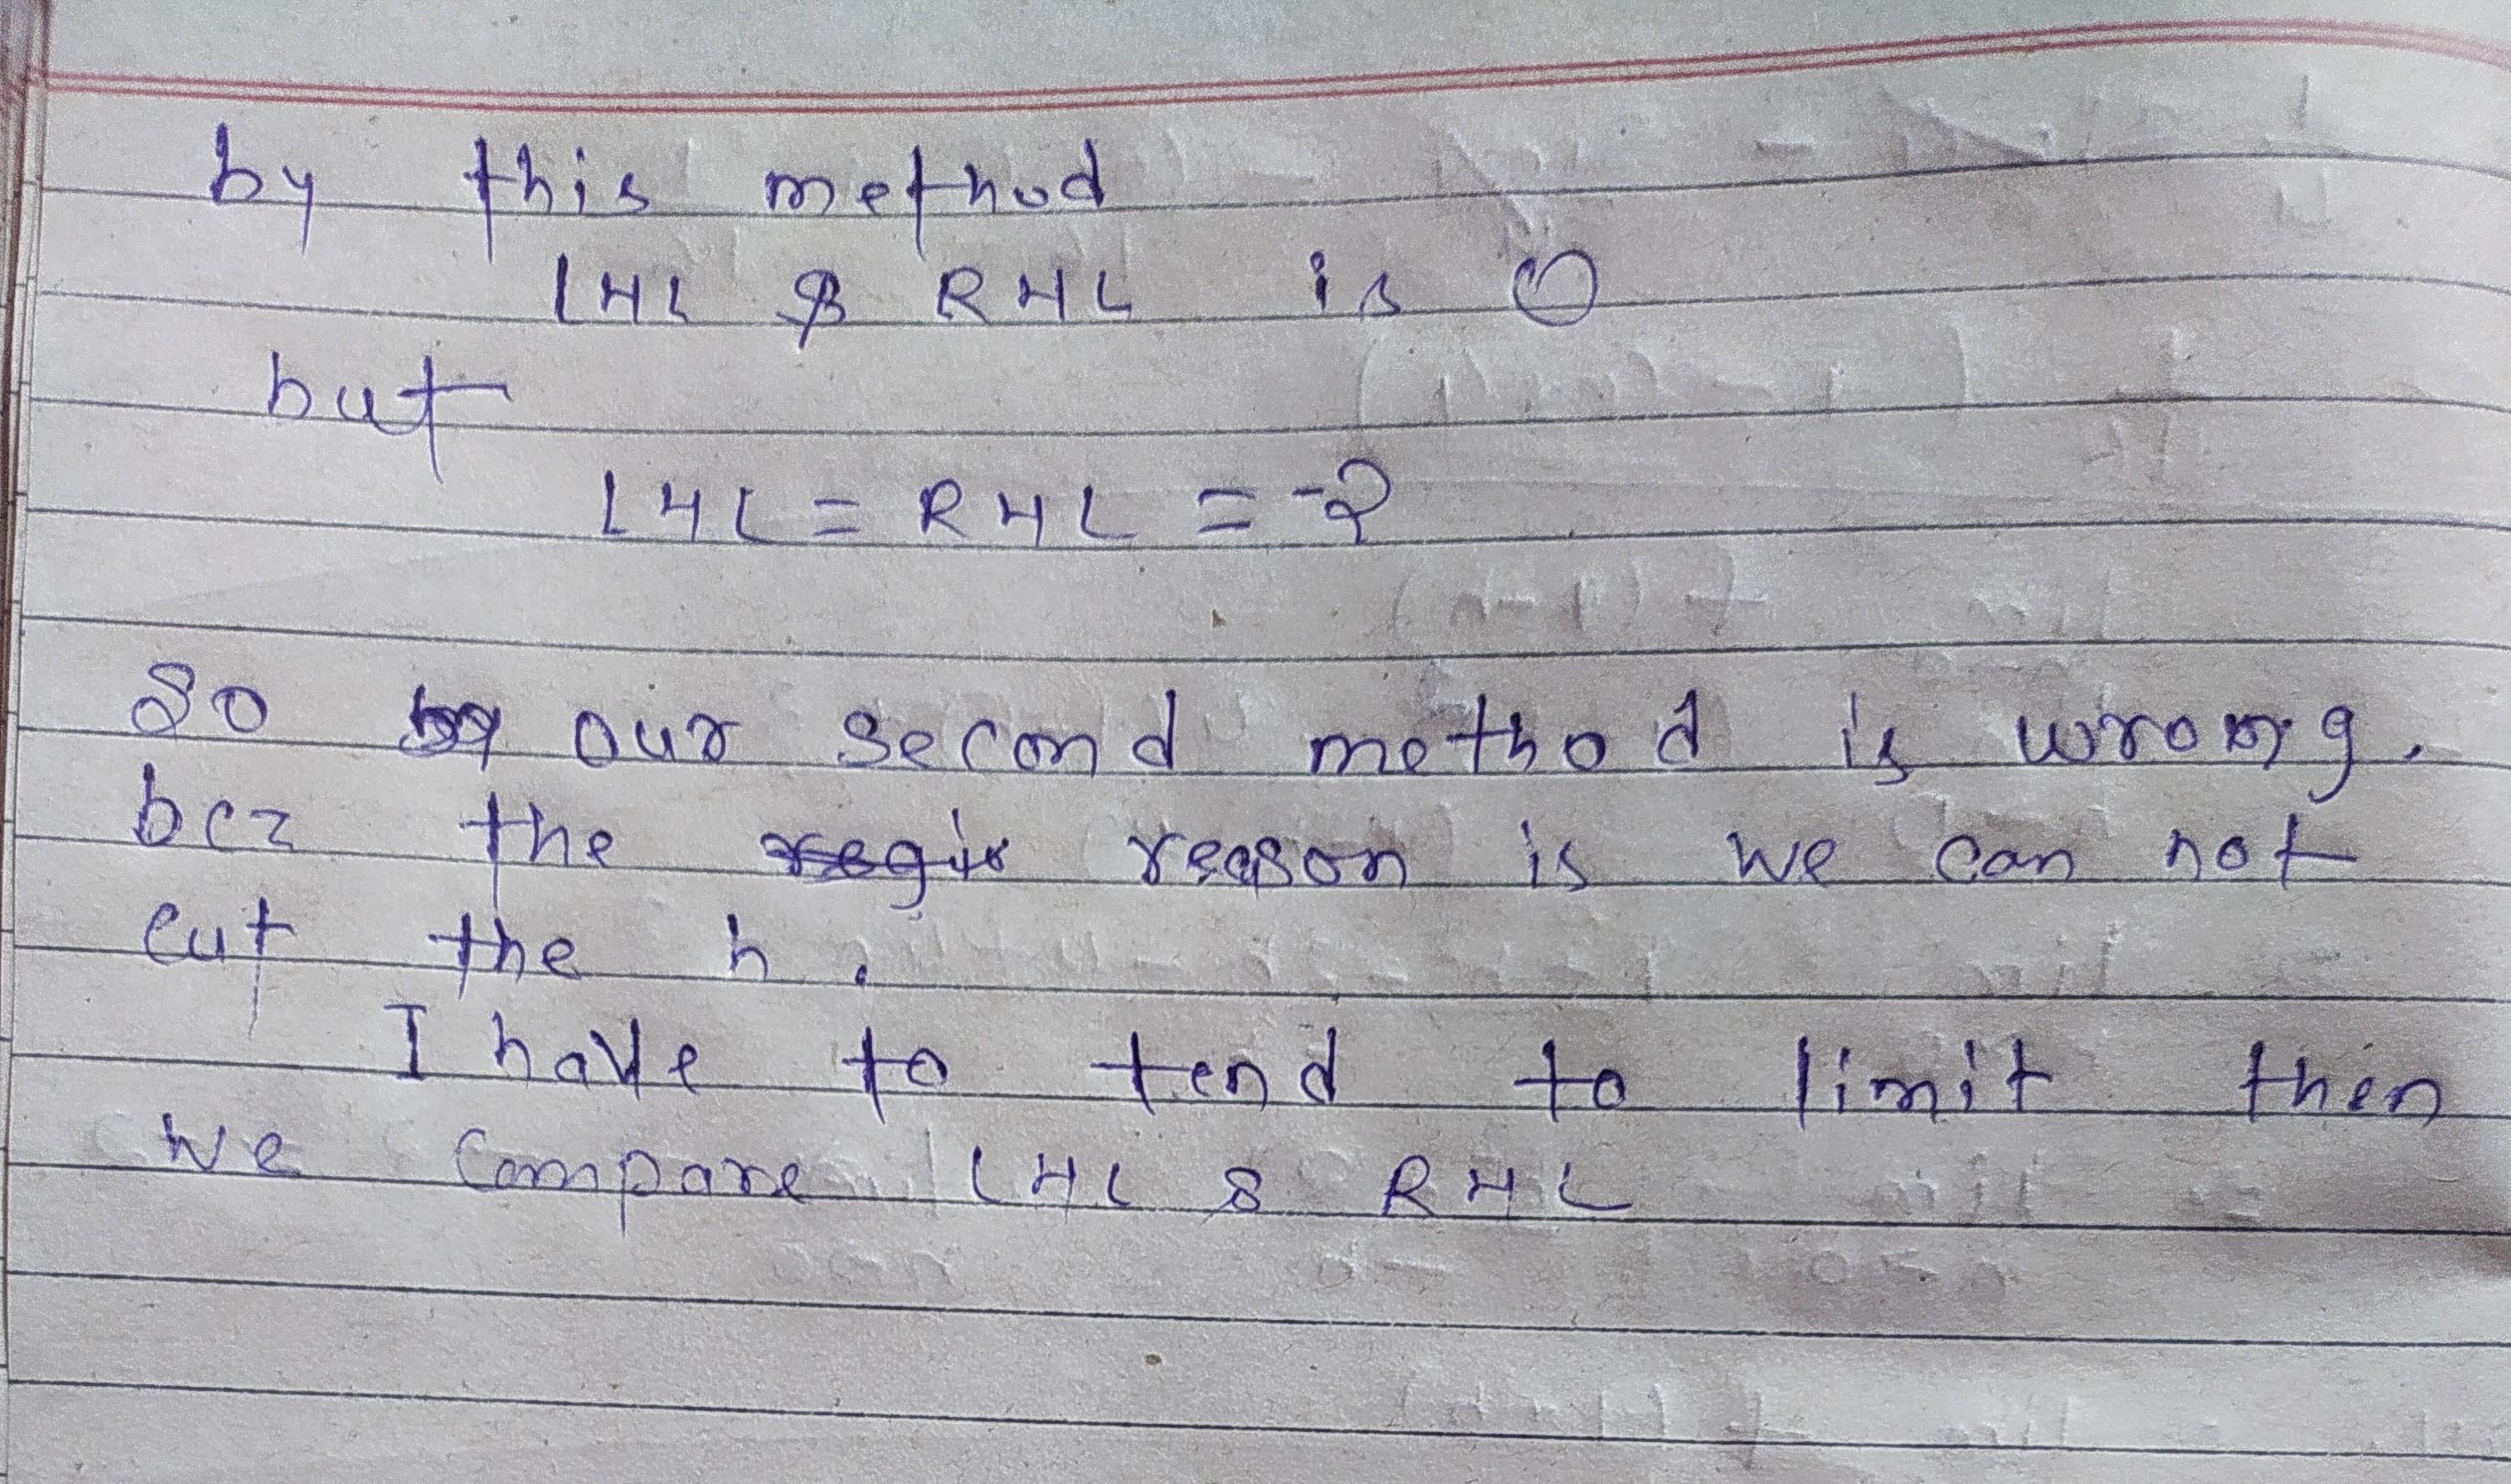 by this method
LHL & RHL is 0
but
LHL = RHL = -2
So our second method is wrong.
bcz the reason is we can not
cut the h.
I have to tend to limit then
we compare LHL & RHL